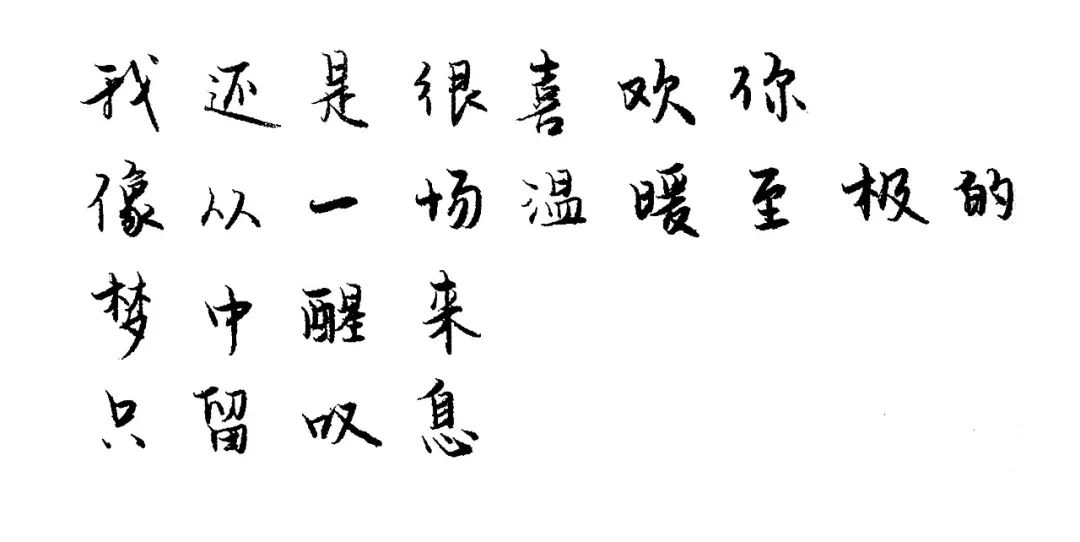 我还是很喜欢你
像从一场温暖至极的
梦中醒来
只留叹息